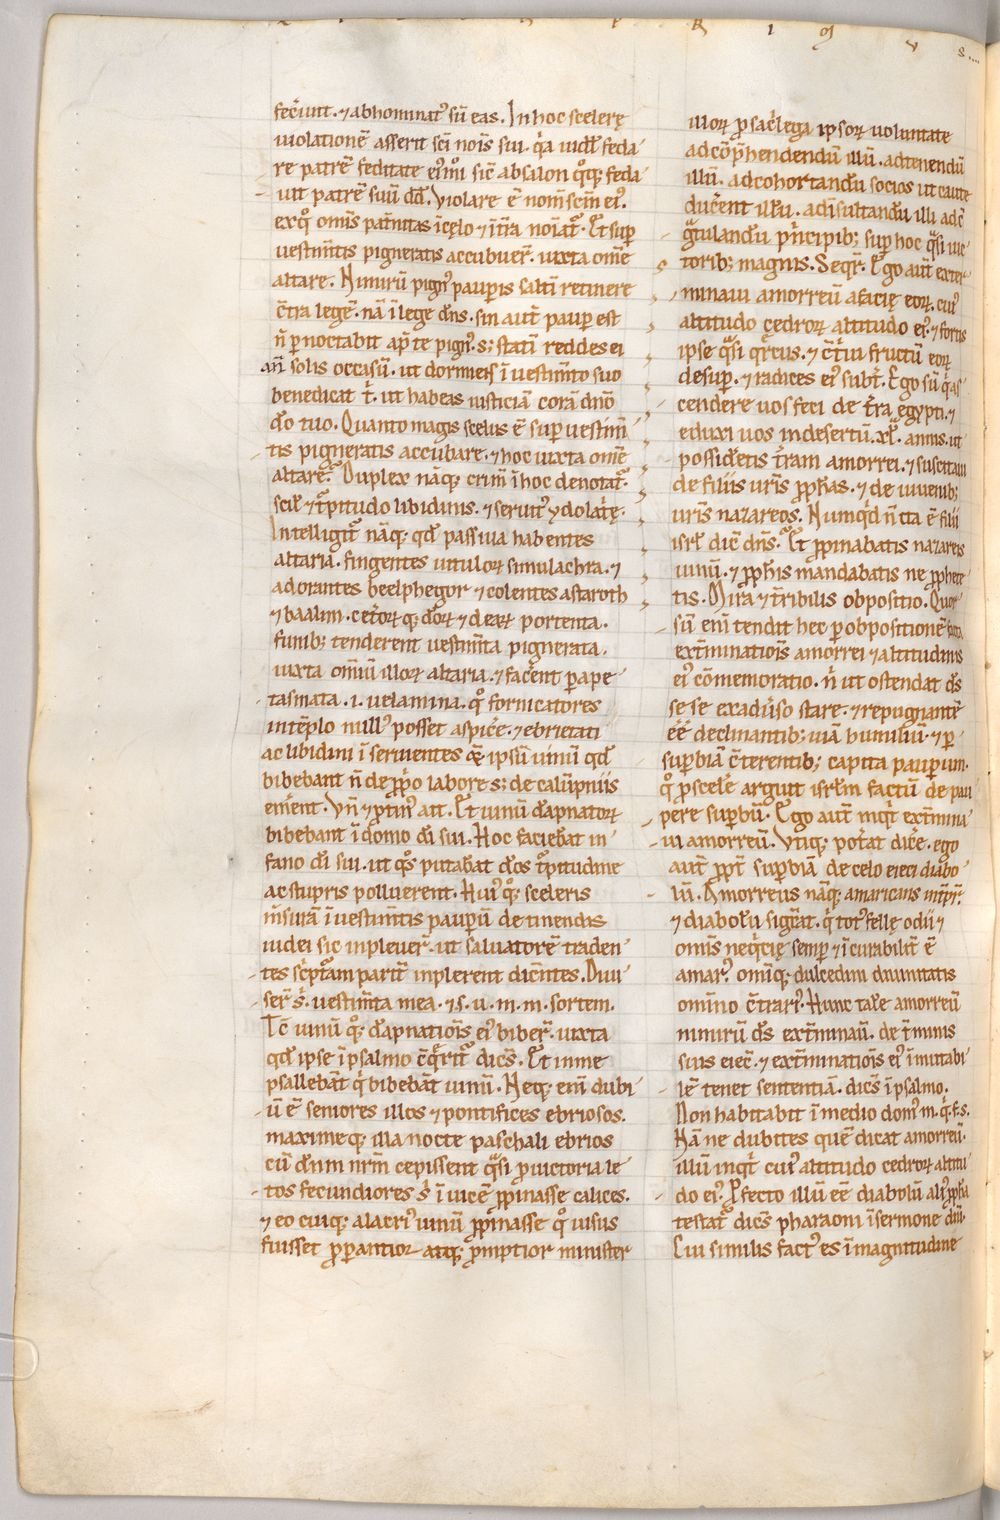 fecerunt. ⁊ abhominat᾽ sũ eas. In hoc scelerę
uiolationẽ asserit sci nois sui. q̇a uidel̃ feda
re patrẽ feditate ei᾽mi sic̃ absalon q̊q; feda
uit patrẽ suũ dd̃. Violare ẽ nom̃ scm̃ ei᾽.
exq̊ omĩs pat̃nitas ĩ cęlo ⁊ ĩ t̃ra noĩat᾽. Et sup
uestim̃tis pigneratis accubuer̃. iuxta omẽ
altare. Nimirũ pign᾽ paup̱is saltĩ retinere
c̃tra legẽ. nã ĩ lege dñs. sin aut̃ paup est
ñ p̱noctabit ap̃ te pign᾽. s; statĩ reddes ei
añ solis occasũ. ut dormiẽs ĩ uestim̃to suo
benedicat t̃. ut habeas iusticiã corã dño
do tuo. Quanto magis scelus ẽ sup uestim̃
tis pigneratis accubare. ⁊ hoc iuxta omẽ
altare. Duplex nãq; crim̃ ĩ hoc denotat᾽.
scil̃ ⁊ t᾽pitudo libidinis. ⁊ seruit᾽ ydolat̃ę.
Intelligit᾽ nãq; qd̃ passiua habentes
altaria. fingentes uitulor̃ simulachra. ⁊
adorantes beelphegor ⁊ colentes astaroth
⁊ baalim. cet̃or̃q; dor̃ ⁊ dear̃ portenta.
funib; tenderent uestim̃ta pignerata.
iuxta omĩũ illor̃ altaria. ⁊ facerent p̱ ape
tasmata. .i. uelamina. q̊ fornicatores
intẽplo null᾽ posset aspic̃e. ⁊ ebrietati
ac libidini ĩseruientes ipsũ uinũ qd̃
bibebant ñ de ꝓp̃o labore s; de calũpniis
em̃ent. Vñ ⁊ ptin᾽ ait. Et uinũ dãpnator̃
bibebant ĩ domo di sui. Hoc faciebãt in
fano di sui. ut q̊s putabãt dos t᾽pitudine
ac stupris polluerent. Hui᾽ q̊q; sceleris
m̃surã ĩ uestim̃tis paup̱ũ detinendis
iudei sic inpleuer̃. ut saluatorẽ traden
tes sc̃pt᾽am parit᾽ inplerent dicẽtes. Diui
ser̃ s᾽. uestim̃ta mea. ⁊ .s. u. m. m. sortem.
Tc̃ uinũ q̊q; dãpnatiõis ei᾽ biber̃. iuxta
qd̃ ipse ĩ psalmo c̃q̇rit᾽ dicẽs. Et in me
psallebãt q̇ bibebãt uinũ. Neq; eni dubi
ũ ẽ seniores illos ⁊ pontifices ebriosos.
maximeq; illa nocte paschali ebrios
cũ dnm nrm cepissent q̃si p uictoria le
tos fecundiores s᾽ ĩuicẽ ꝓpinasse calices.
⁊ eo cuiq; alacri᾽ uinũ ꝓpinasse q̊ uisus
fuisset ꝓp̱antior atq; ꝓmptior minister
illor̃ ꝓ sac̃lega ipsor̃ uoluntate
adcõp̃hendendũ illũ. adtenendũ
illũ. adcohortandũ socios ut caute
duc̃ent illũ. adĩsultandũ illi adc̃
g̃tulandũ p̃ncipib; sup hoc q̃si uic
torib; magnis. Seqr̃. Ego aut̃ exter
minaui amorreũ a facię eor̃. cui᾽
altitudo cedror̃ altitudo ei᾽. ⁊ fortis
ipse q̃si q̃rcus. ⁊ c̃t̃ui fructũ eor̃
desup. ⁊ radices ei᾽ subt̃. Ego sũ q̇ as
cendere uos feci de t̃ra egypti. ⁊
eduxi uos in desertũ. xl. annis. ut
possideretis t̃ram amorrei. ⁊ suscitaui
de filiis ur̃is ꝓphas. ⁊ de iuuenib;
ur̃is nazareos. Numq̇d ñ ita ẽ filii
isrl̃ dic̃ dñs. Et ꝓpinabatis nazareis
uinũ. ⁊ ꝓph̃is mandabatis ne ꝓphete
tis. Mira ⁊ t̃ribilis obpositio. Quor
sũ eni tendit hec p̱ obpositionẽ facta
ext̃minatiõis amorrei ⁊ altitudinis
ei᾽ cõmemoratio. ñ ut ostendat ds
se se exad̃uso stare. ⁊ repugnantẽ
eẽ declinantib; uiã humiliũ. ⁊ p̱
sup̱biã c̃terentib; capita paup̱um.
q̊ ꝓ scelẽ arguit isrl̃m factũ de pau
pere sup̱bũ. Ego aut̃ inq̇t ext̃mina
ui amorreũ. Vtiq; pot̃at dic̃e. ego
aut̃ ꝓpt̃ sup̱biã de celo eieci diabo
lũ. Amorreus nãq; amaricans int̃p̃t᾽.
⁊ diabolũ sig̃t. q̇ tot᾽ felle odii ⁊
omĩs neq̇cię semp ⁊ ĩcurabilit̃ ẽ
amar᾽. omĩq; dulcedini diuinitatis
omĩno c̃trari᾽. Hunc tale amorreũ
nimirũ ds ext̃minauit. de t̃minis
suis eiec̃. ⁊ ext̃minatiõis ei᾽ ĩmutabi
lẽ tenet sententiã. dicẽs ĩ psalmo.
Non habitabit ĩ medio dom᾽ m. q̇. f. s.
Nã ne dubites quẽ dicat amorreũ.
illũ inq̇t cui᾽ altitudo cedror̃ altitu
do ei᾽. ꝓfecto illũ eẽ diabolũ ali᾽ ꝓpha
testat᾽ dicẽs pharaoni ĩ sermone diui.
Cui similis fact᾽ es ĩ magnitudine